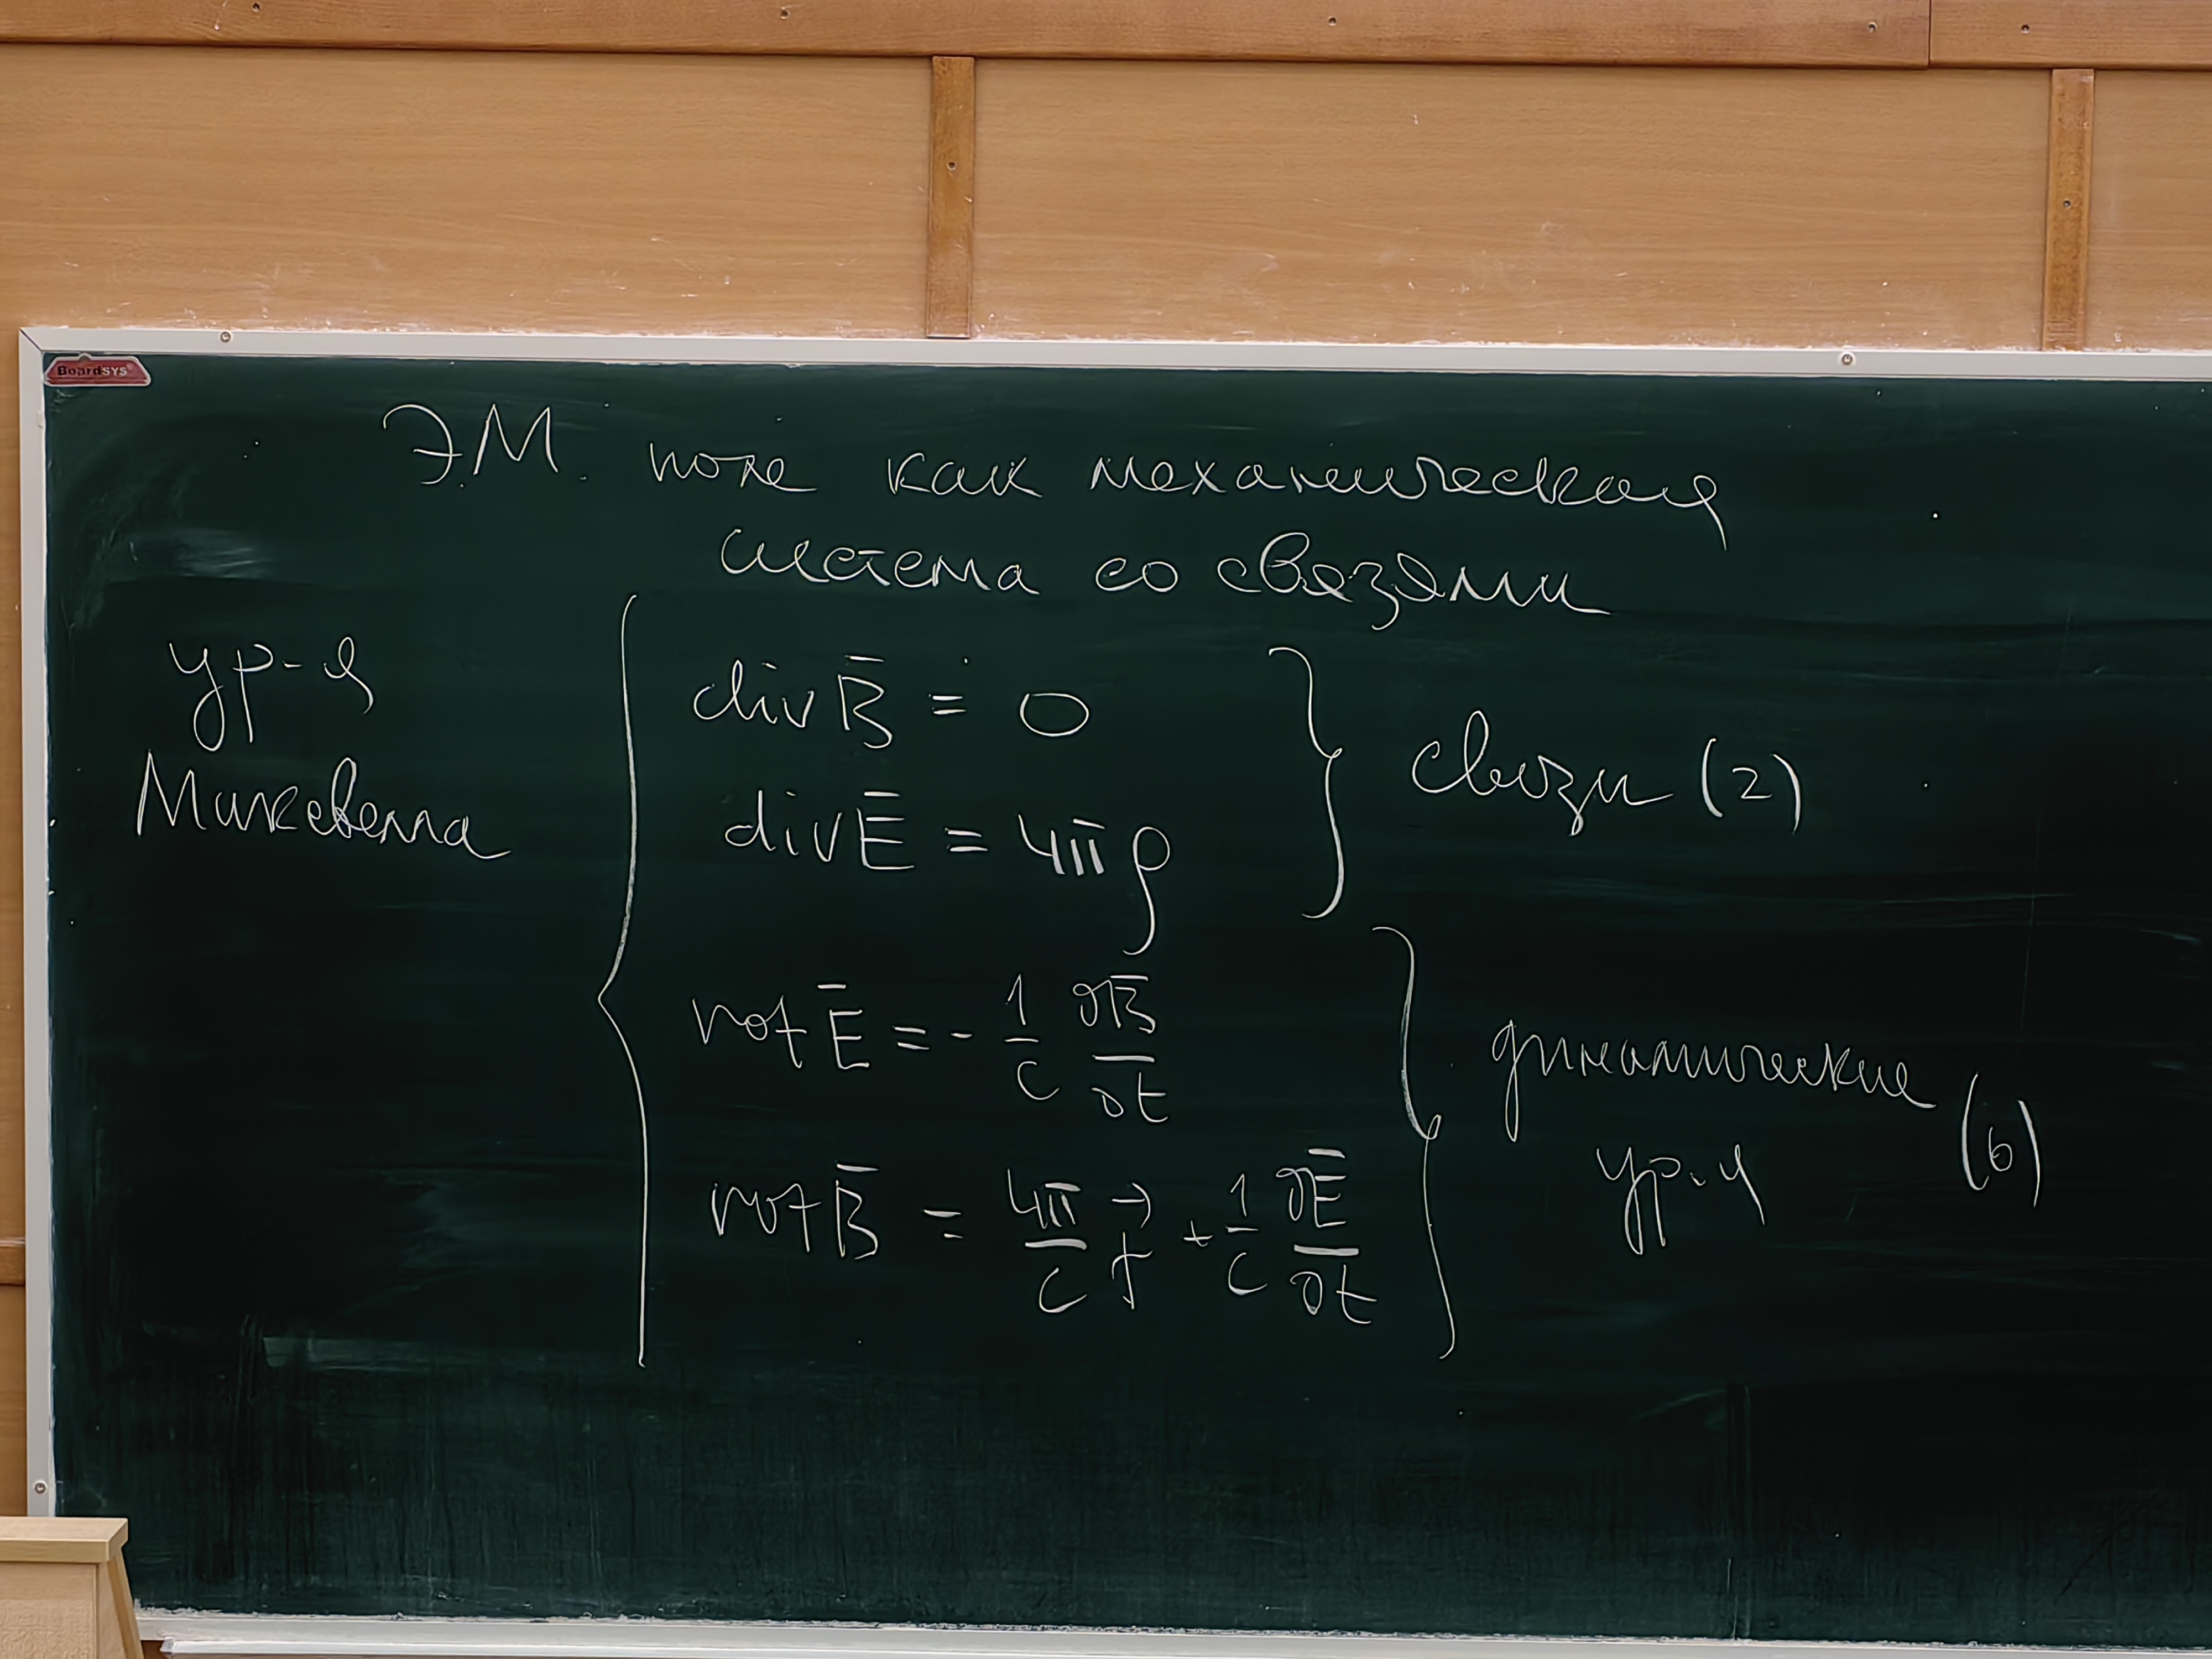 BoardSYS
Э.М. поле как механическая
система со связями
ур-я
Максвелла
div B̄ = 0
div Ē = 4πρ
связи (2)
rot Ē = - 1/c ∂B̄/∂t
rot B̄ = 4π/c j⃗ + 1/c ∂Ē/∂t
динамические
ур-я (6)